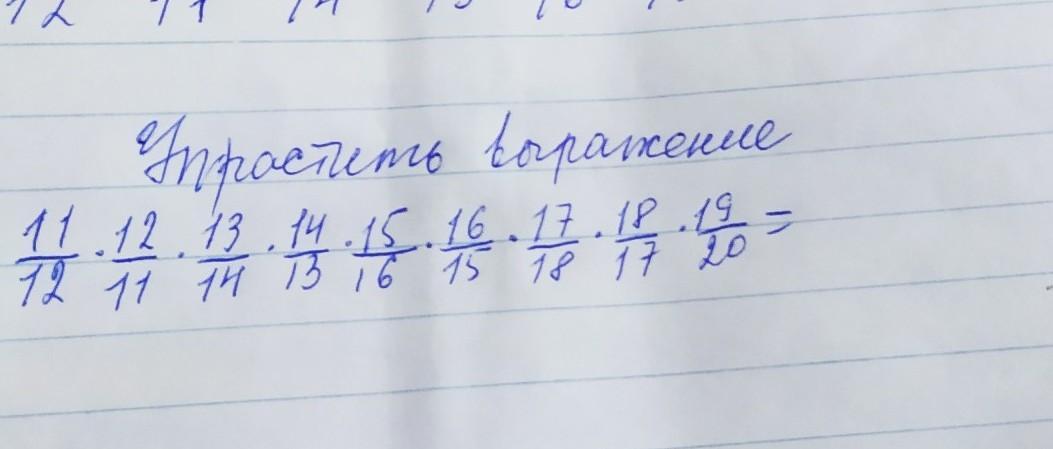 Упростить выражение
11/12 · 12/11 · 13/14 · 14/13 · 15/16 · 16/15 · 17/18 · 18/17 · 19/20 =